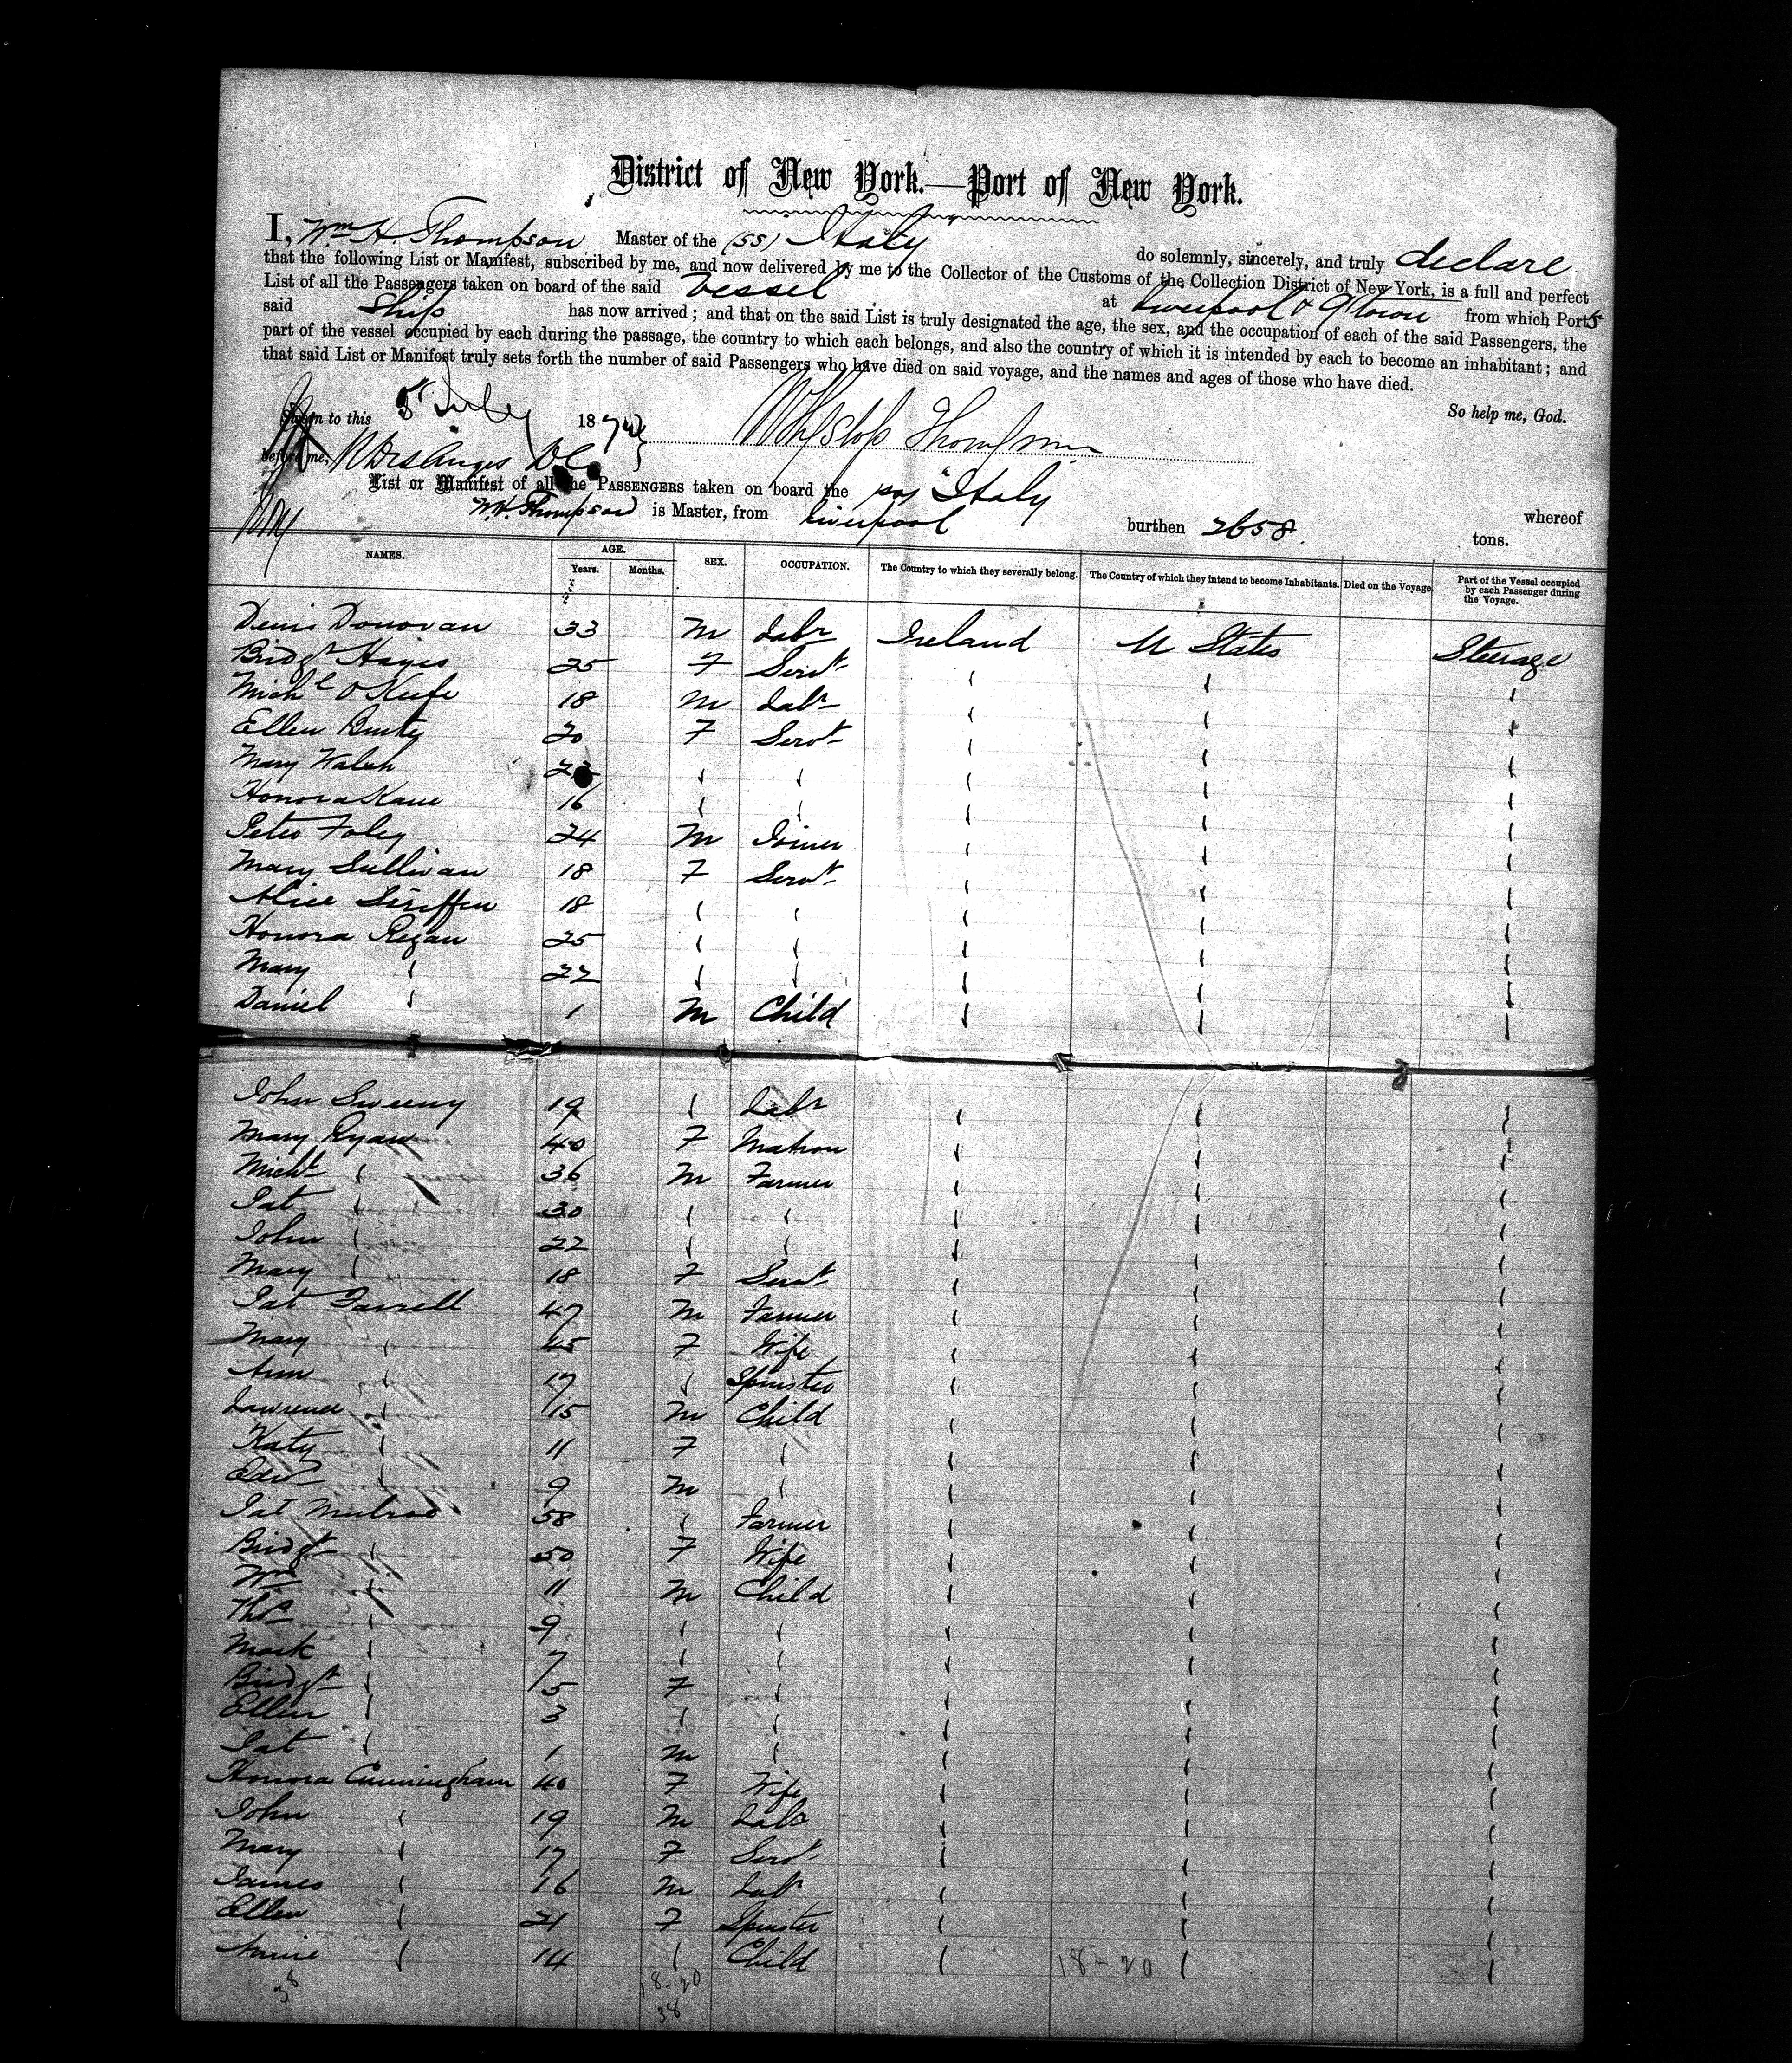 District of New York.—Port of New York.
I, Wm H. Thompson Master of the (SS) "Italy" do solemnly, sincerely, and truly declare
that the following List or Manifest, subscribed by me, and now delivered by me to the Collector of the Customs of the Collection District of New York, is a full and perfect
List of all the Passengers taken on board of the said Vessel at Liverpool & Qtown from which Ports
said Ship has now arrived; and that on the said List is truly designated the age, the sex, and the occupation of each of the said Passengers, the
part of the vessel occupied by each during the passage, the country to which each belongs, and also the country of which it is intended by each to become an inhabitant; and
that said List or Manifest truly sets forth the number of said Passengers who have died on said voyage, and the names and ages of those who have died.
So help me, God.
Sworn to this July 187
before me,
List or Manifest of all the PASSENGERS taken on board the "Italy" whereof
W.H. Thompson is Master, from Liverpool burthen 2658 tons.
NAMES. AGE. SEX. OCCUPATION. The Country to which they severally belong. The Country of which they intend to become Inhabitants. Died on the Voyage. Part of the Vessel occupied by each Passenger during the Voyage.
Years. Months.
Denis Donovan 33 M Labr Ireland U States Steerage
Bridgt Hayes 25 F Servt
Michl O Keefe 18 M Labr
Ellen 20 F Servt
Mary Walsh
Honora Kane 16
Peter Foley 24 M Joiner
Mary Sullivan 18 F Servt
Alice 18
Honora Regan 25
Mary " 22
Daniel " 1 M Child
John Sweeny 19 " Labr
Mary Ryan 40 F Matron
Michl " 36 M Farmer
Pat " 30 " "
John " 22 " "
Mary " 18 F Servt
Pat Farrell 47 M Farmer
Mary " 45 F Wife
Ann " 17 " Spinster
Lawrence " 15 M Child
Katy " 11 F "
Edwd " 9 M "
Pat 58 " Farmer
Bridgt " 50 F Wife
Wm " 11 M Child
Thos " 9 " "
Mark " 7 " "
Bridgt " 5 F "
Ellen " 3 " "
Pat " 1 M "
Honora Cunningham 40 F Wife
John " 19 M Labr
Mary " 17 F Servt
James " 16 M Labr
Ellen " 21 F Spinster
Annie " 14 " Child
38 18-20 18-20
38